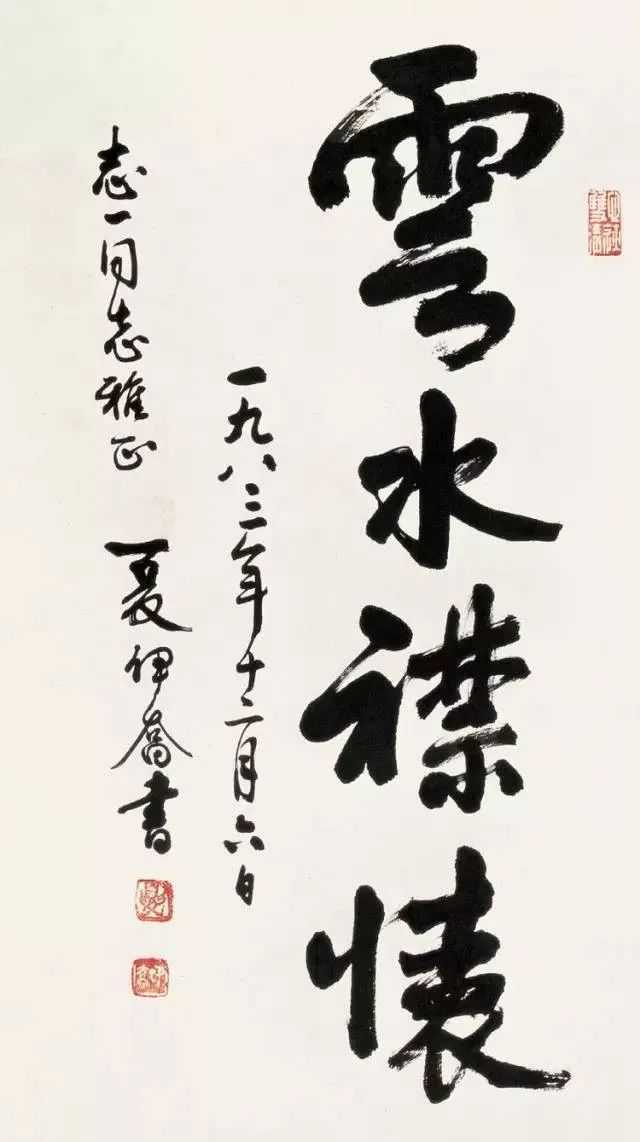 雲水襟懷
一九八三年十二月六日
志一同志雅正 夏伊喬書